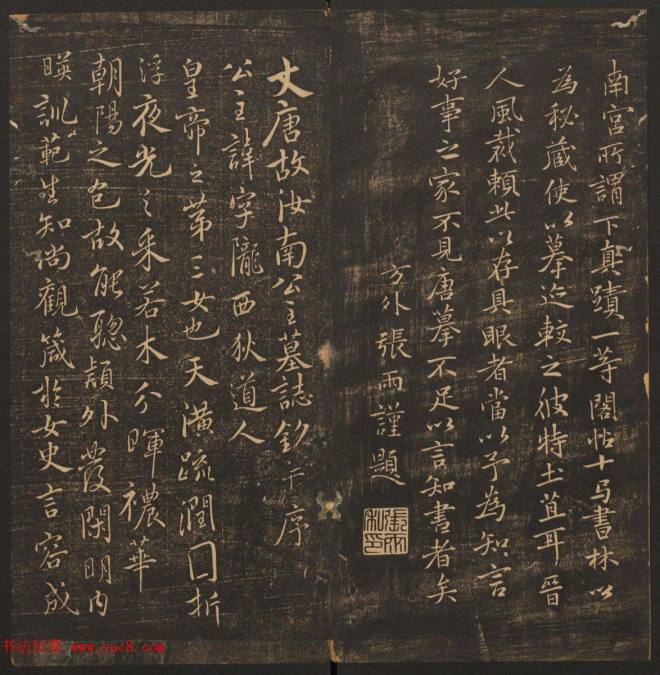 南宮所謂下真蹟一等閣帖十马書林以
為秘藏使以摹迹較之彼特土苴耳晉
人風裁頼此以存具眼者當以予為知言
好事之家不見唐摹不足以言知書者矣
方外張雨謹題
張雨私印
大唐故汝南公主墓誌銘并序
公主諱字隴西狄道人
皇帝之第三女也天潢疏潤圓折
浮夜光之采若木分暉穠華
朝陽之色故能聦穎外發閑明内
暎訓範生知尚觀箴於女史言容成
书法欣赏 www.yac8.com